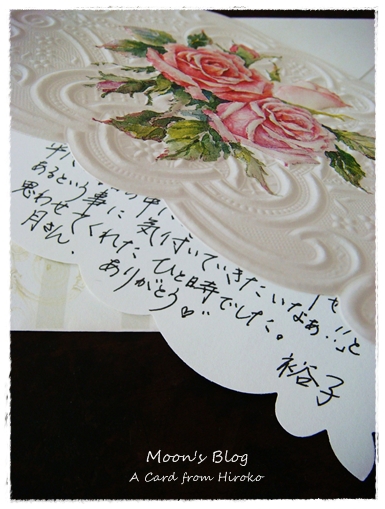 あるという
事に 気付いていきたいなぁ!!」と
思わせてくれた ひと時でした。
月さん、
ありがとう♡
裕子
Moon's Blog
A Card from Hiroko